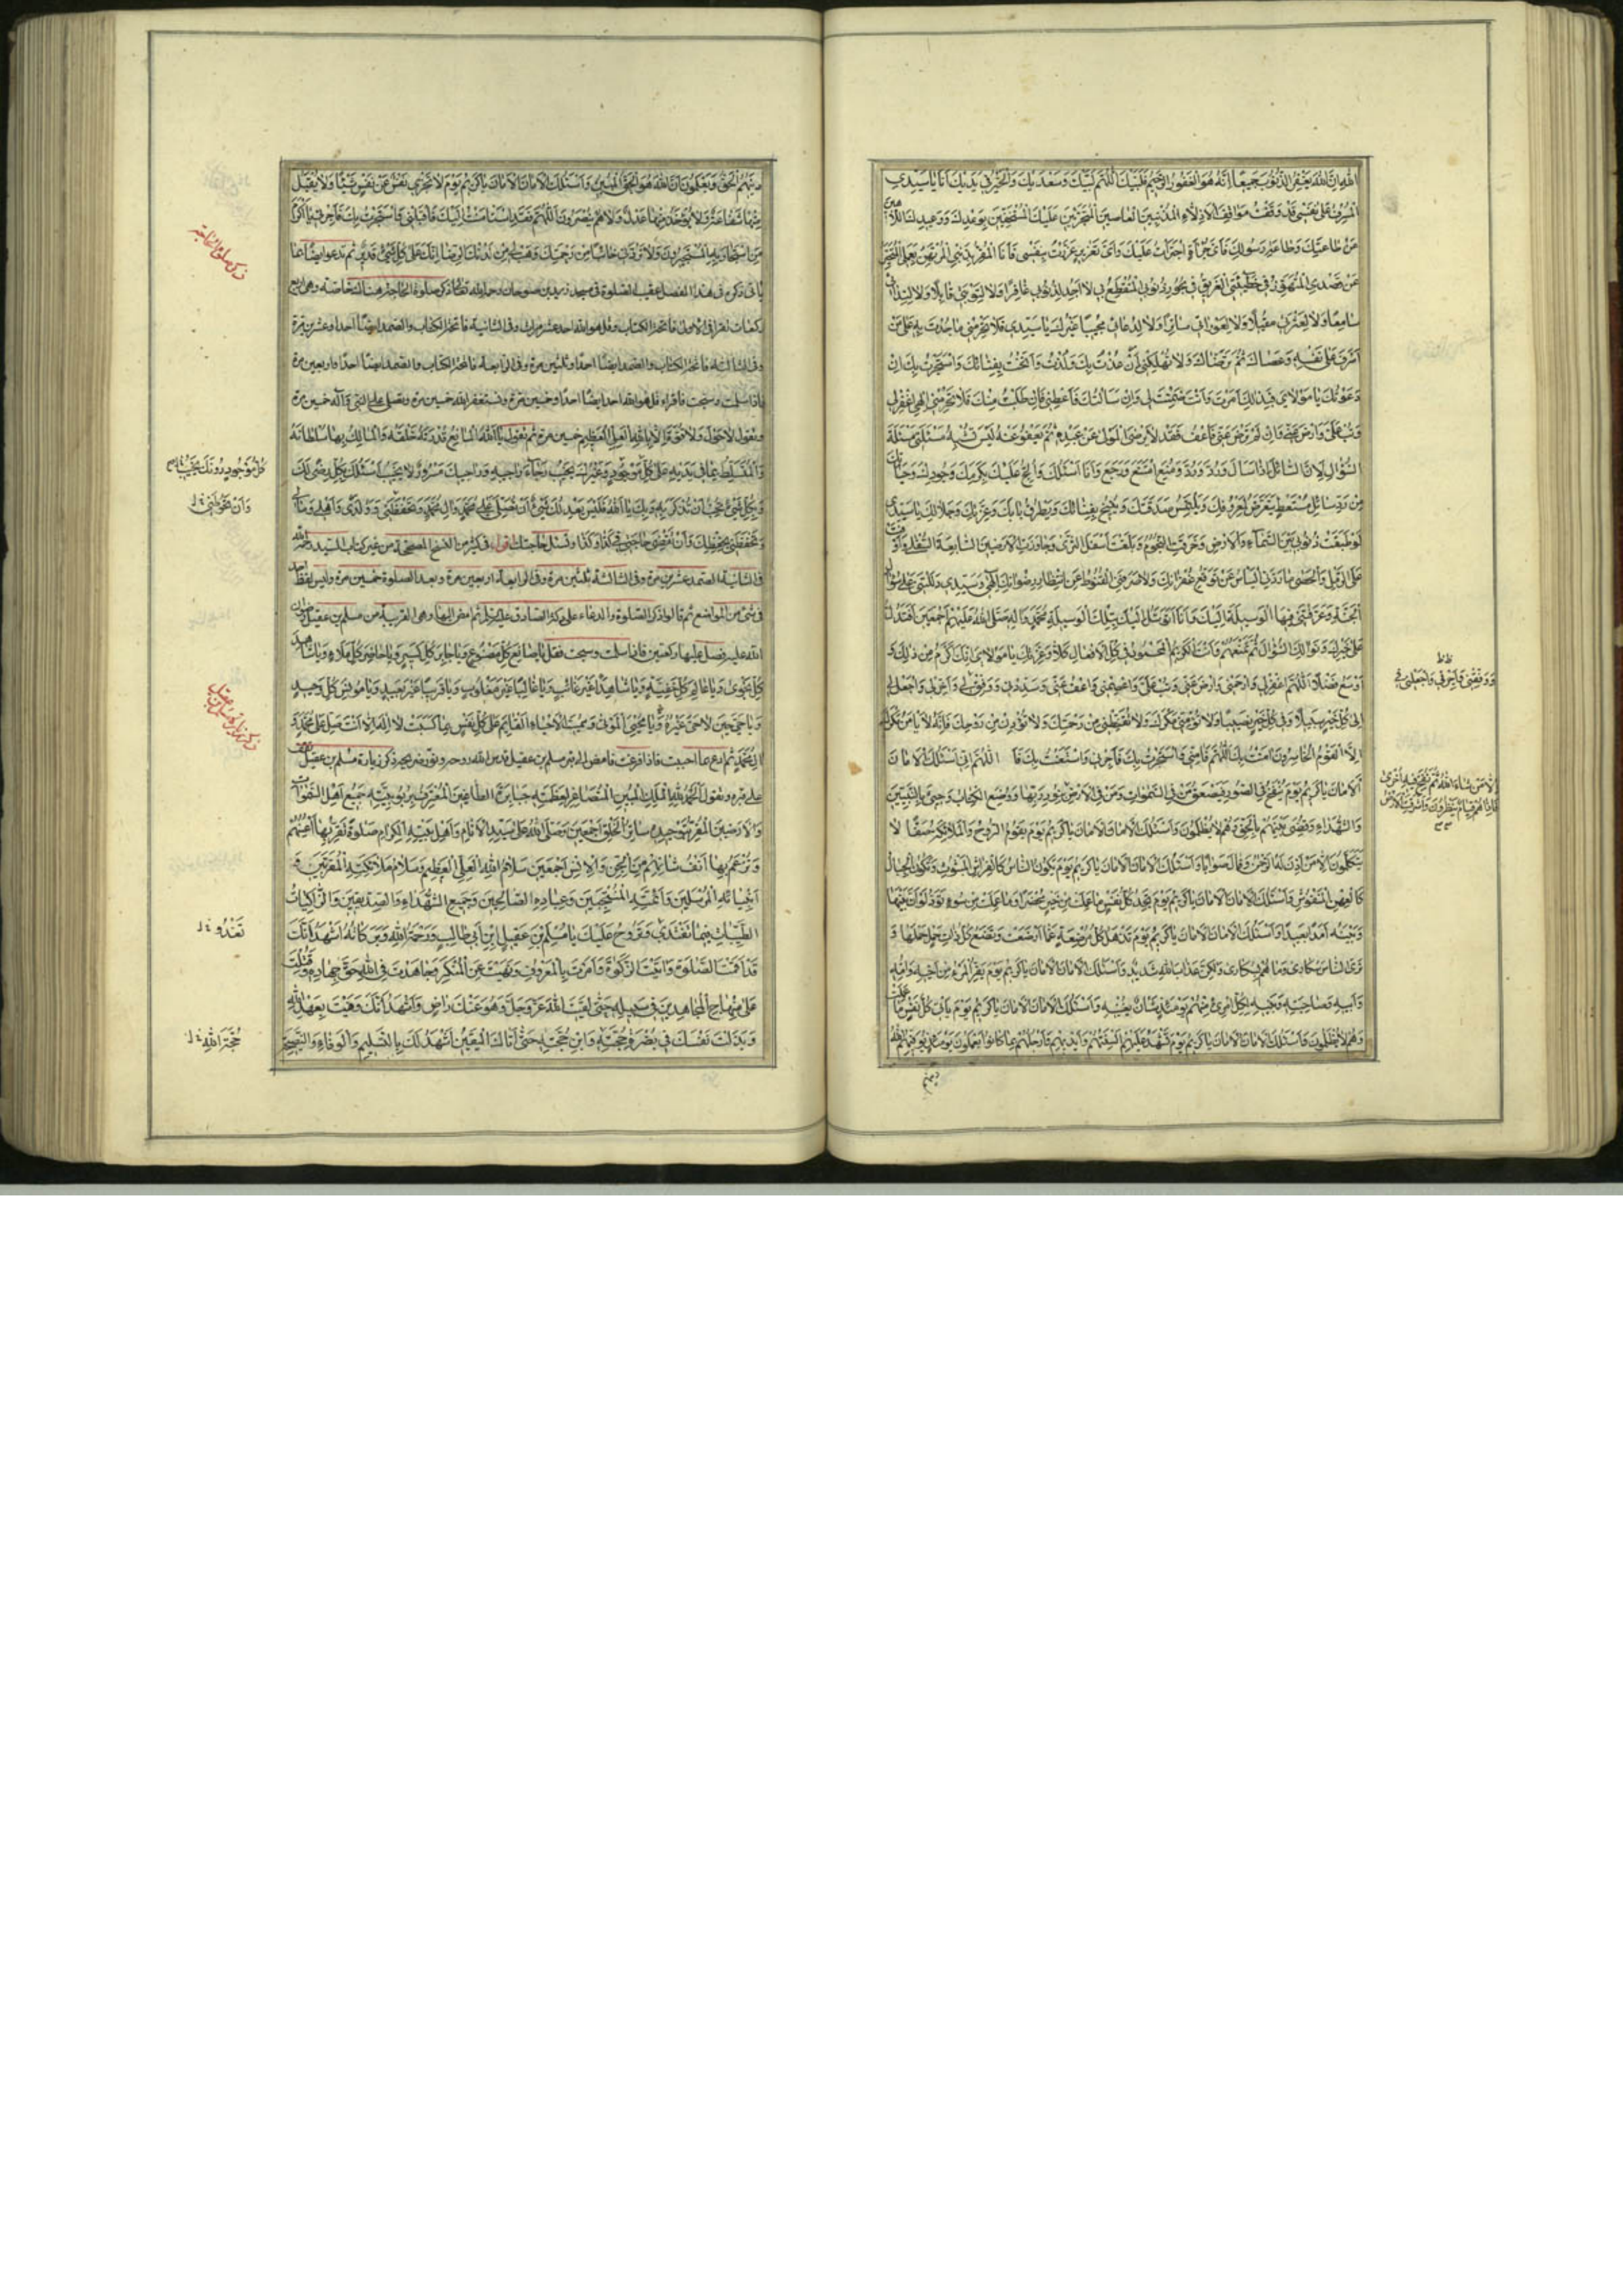 الله ان الله يغفر الذنوب جميعا انه هو الغفور الرحيم فلبيك اللهم لبيك وسعديك والخير في يديك انا يا سيدي
المسرف على نفسي قد وقفت مواقف الاذلاء المذنبين العاصين المتجرئين عليك المستخفين بوعدك ووعيدك اللاهين
عن طاعتك وطاعة رسولك فاي جرأة اجترأت عليك واي تغرير غررت بنفسي فانا المقر بذنبي المرتهن بعملي المتحير
عن قصدي المتهور في خطيئتي الغريق في بحور ذنوبي المنقطع بي لا اجد لذنوبي غافرا ولا لتوبتي قابلا ولا لندائي
سامعا ولا لعثرتي مقيلا ولا لعورتي ساترا ولا لدعائي مجيبا غيرك يا سيدي فلا تحرمني ما جدت به على من
اسرف على نفسه وعصاك ثم ترضاك ولا تهلكني ان عذت بك ولذت وانخت بفنائك واستجرت بك ان
دعوتك يا مولاي فبذلك امرت وانت ضمنت لي وان سألتك فاعطني فان طلبت منك فلا تحرمني الهي اغفر لي
وتب علي وارض عني فان لم ترض عني فاعف فقد لا يرضى المولى عن عبده ثم يعفو عنه ليس تشبه مسئلتي مسئلة
السؤال لان السائل اذا سأل ورد ورد ومنع امتنع ورجع وانا اسئلك والح عليك بكرمك وجودك وحيائك
من رد سائل مستعط يتعرض لمعروفك ويلتمس صدقتك وينيخ بفنائك ويطرق بابك وعزتك وجلالك يا سيدي
لو طبقت ذنوبي بين السماء والارض وخرقت النجوم وبلغت اسفل الثرى وجاوزت الارضين السابعة السفلى واوفت
على الرمل والحصى ما ردني الياس عن توقع غفرانك ولا صرفني القنوط عن انتظار رضوانك الهي وسيدي دللتني على سؤال
الجنة وعرفتني فيها الوسيلة اليك وانا اتوسل اليك بتلك الوسيلة محمد واله صلى الله عليهم اجمعين افتدل
على خيرك ونوالك السؤال ثم تمنعهم وانت الكريم المحمود في كل الافعال كلا وعزتك يا مولاي انك اكرم من ذلك و
اوسع فضلا اللهم اغفر لي وارحمني وارض عني وتب علي واعصمني واعف عني وسددني ووفق لي واجعل لي
الى كل خير سبيلا وفي كل خير نصيبا ولا تؤمني مكرك ولا تقنطني من رحمتك ولا تؤيسني من روحك فانه لا يأمن مكرك
الا القوم الخاسرون امنت بك اللهم فامني واستجرت بك فاجرني واستعنت بك فا اللهم اني اسئلك الامان
الامان يا كريم يوم ينفخ في الصور فيصعق من في السموات ومن في الارض بنور ربها ووضع الكتاب وجئ بالنبيين
والشهداء وقضى بينهم بالحق وهم لا يظلمون واسئلك الامان الامان يا كريم يوم يقوم الروح والملائكة صفا لا
يتكلمون الا من اذن له الرحمن وقال صوابا واسئلك الامان الامان يا كريم يوم يكون الناس كالفراش المبثوث وتكون الجبال
كالعهن المنفوش واسئلك الامان الامان يا كريم يوم تجد كل نفس ما عملت من خير محضرا وما عملت من سوء تود لو ان بينها
وبينه امدا بعيدا واسئلك الامان الامان يا كريم يوم تذهل كل مرضعة عما ارضعت وتضع كل ذات حمل حملها و
ترى الناس سكارى وما هم بسكارى ولكن عذاب الله شديد واسئلك الامان الامان يا كريم يوم يفر المرء من اخيه وامه
وابيه وصاحبته وبنيه لكل امرئ منهم يومئذ شأن يغنيه واسئلك الامان الامان يا كريم يوم يأتي كل نفس ما عملت
وهم لا يظلمون واسئلك الامان الامان يا كريم يوم تشهد عليهم السنتهم وايديهم وارجلهم بما كانوا يعملون يومئذ يوفيهم الله
دينهم
ووفقني
الا من شاء الله ثم نفخ فيه اخرى
فاذا هم قيام ينظرون واشرقت الارض
دينهم الحق ويعلمون ان الله هو الحق المبين واسئلك الامان الامان يا كريم يوم لا تجزي نفس عن نفس شيئا ولا يقبل
منها شفاعة ولا يؤخذ منها عدل ولا هم ينصرون اللهم فقد استأمنت اليك فاقبلني واستجرت بك فاجرني يا اكرم
من استجار به المستجيرون ولا تردني خائبا من رحمتك وهب لي من لدنك الرضا انك على كل شئ قدير ثم تدعو ايضا بما
ركعات تقرا في الاولى فاتحة الكتاب وقل هو الله احد عشر مرات وفي الثانية فاتحة الكتاب والصمد ايضا احدا وعشرين مرة
وفي الثالثة فاتحة الكتاب والصمد ايضا احدا وثلثين مرة وفي الرابعة فاتحة الكتاب والصمد ايضا احدا واربعين مرة
فاذا سلمت وسبحت فاقراء قل هو الله احد ايضا احدا وخمسين مرة وتستغفر الله خمسين مرة وتصلي على النبي وآله خمسين مرة
وتقول لا حول ولا قوة الا بالله العلي العظيم خمسين مرة ثم تقول يا الله المانع قدرته خلقه والمالك بها سلطانه
والمتسلط بما في يديه على كل موجود وغيرك يخيب رجاء راجيه وراجيك مسرور لا يخيب اسئلك بكل رضى لك
وبكل شئ تحب ان تذكر به وبك يا الله فليس يعدلك شئ ان تصلي على محمد وال محمد وتحفظني وولدي واهلي ومالي
وتحفظني بحفظك وان تقضي حاجتي في كذا وكذا وتسئل حاجتك
في الثانية الصمد عشرين مرة وفي الثالثة ثلثين مرة وفي الرابعة اربعين مرة وبعد الصلوة خمسين مرة وليس لفظ احد
في شئ من المواضع ثم قالوا ذكر الصلوة والدعاء على دكة الصادق عليه السلم ثم امض اليها وهي القريبة من مسلم بن عقيل رضوان
الله عليه فصل عليها ركعتين فاذا سلمت وسبحت فقل يا صانع كل مصنوع ويا جابر كل كسير ويا حاضر كل ملاء ويا شاهد
كل نجوى ويا عالم كل خفية ويا شاهدا غير غائب ويا غالبا غير مغلوب ويا قريبا غير بعيد ويا مونس كل وحيد
ويا حي حين لا حي غيره ويا محيي الموتى ومميت الاحياء القائم على كل نفس بما كسبت لا اله الا انت صل على محمد و
ال محمد ثم ادع بما احببت فاذا فرغت فامض الى قبر مسلم بن عقيل قدس الله روحه ونور ضريحه ذكر زيارة مسلم بن عقيل
على قبره وتقول الحمد لله الملك المبين المتصاغر لعظمته جبابرة الطاغين المعترف بربوبيته جميع اهل السموات
والارضين المقر بتوحيده سائر الخلق اجمعين وصلى الله على سيد الانام واهل بيته الكرام صلوة تقر بها اعينهم
وترغم بها انف شانئهم من الجن والانس اجمعين سلام الله العلي العظيم وسلام ملائكته المقربين و
انبيائه المرسلين وائمته المنتجبين وعباده الصالحين وجميع الشهداء والصديقين والزاكيات
الطيبات فيما تغتدي وتروح عليك يا مسلم بن عقيل بن ابي طالب ورحمة الله وبركاته اشهد انك
قد اقمت الصلوة واتيت الزكوة وامرت بالمعروف ونهيت عن المنكر وجاهدت في الله حق جهاده وقتلت
على منهاج المجاهدين في سبيله حتى لقيت الله عز وجل وهو عنك راض واشهد انك وفيت بعهد الله
وبذلت نفسك في نصرة حجته وابن حجته حتى اتاك اليقين اشهد لك بالتسليم والوفاء والنصيحة
ذكر صلوة الحاجة
وان تحوطني
تغدو
حجة الله